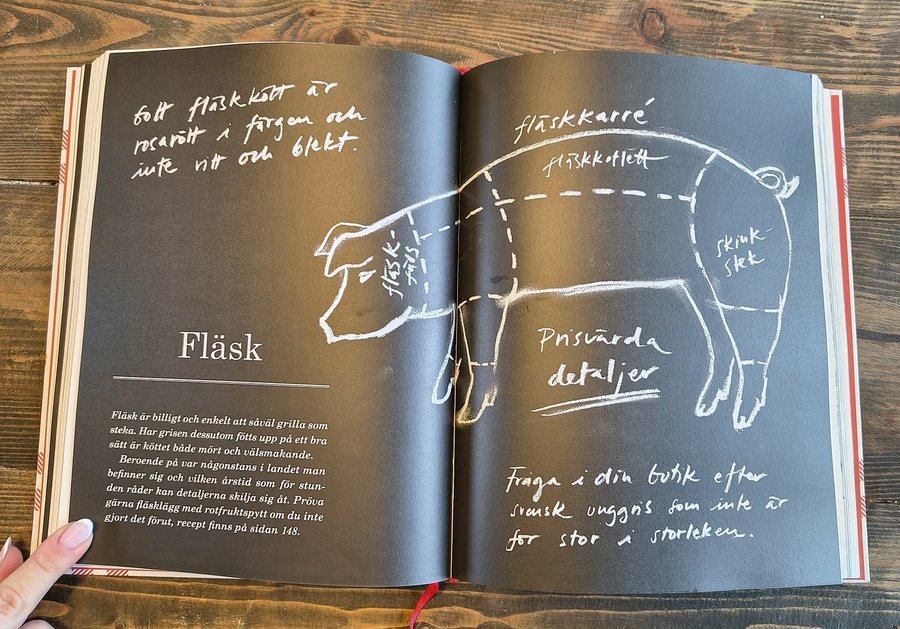 Gott fläskkött är
rosarött i färgen och
inte vitt och blekt.
Fläsk
Fläsk är billigt och enkelt att såväl grilla som
steka. Har grisen dessutom fötts upp på ett bra
sätt är köttet både mört och välsmakande.
Beroende på var någonstans i landet man
befinner sig och vilken årstid som för stun-
den råder kan detaljerna skilja sig åt. Pröva
gärna fläsklägg med rotfruktspytt om du inte
gjort det förut, recept finns på sidan 148.
fläskkarré
fläskkotlett
fläsk-
färs
skink-
stek
Prisvärda
detaljer
Fråga i din butik efter
svensk unggris som inte är
för stor i storleken.